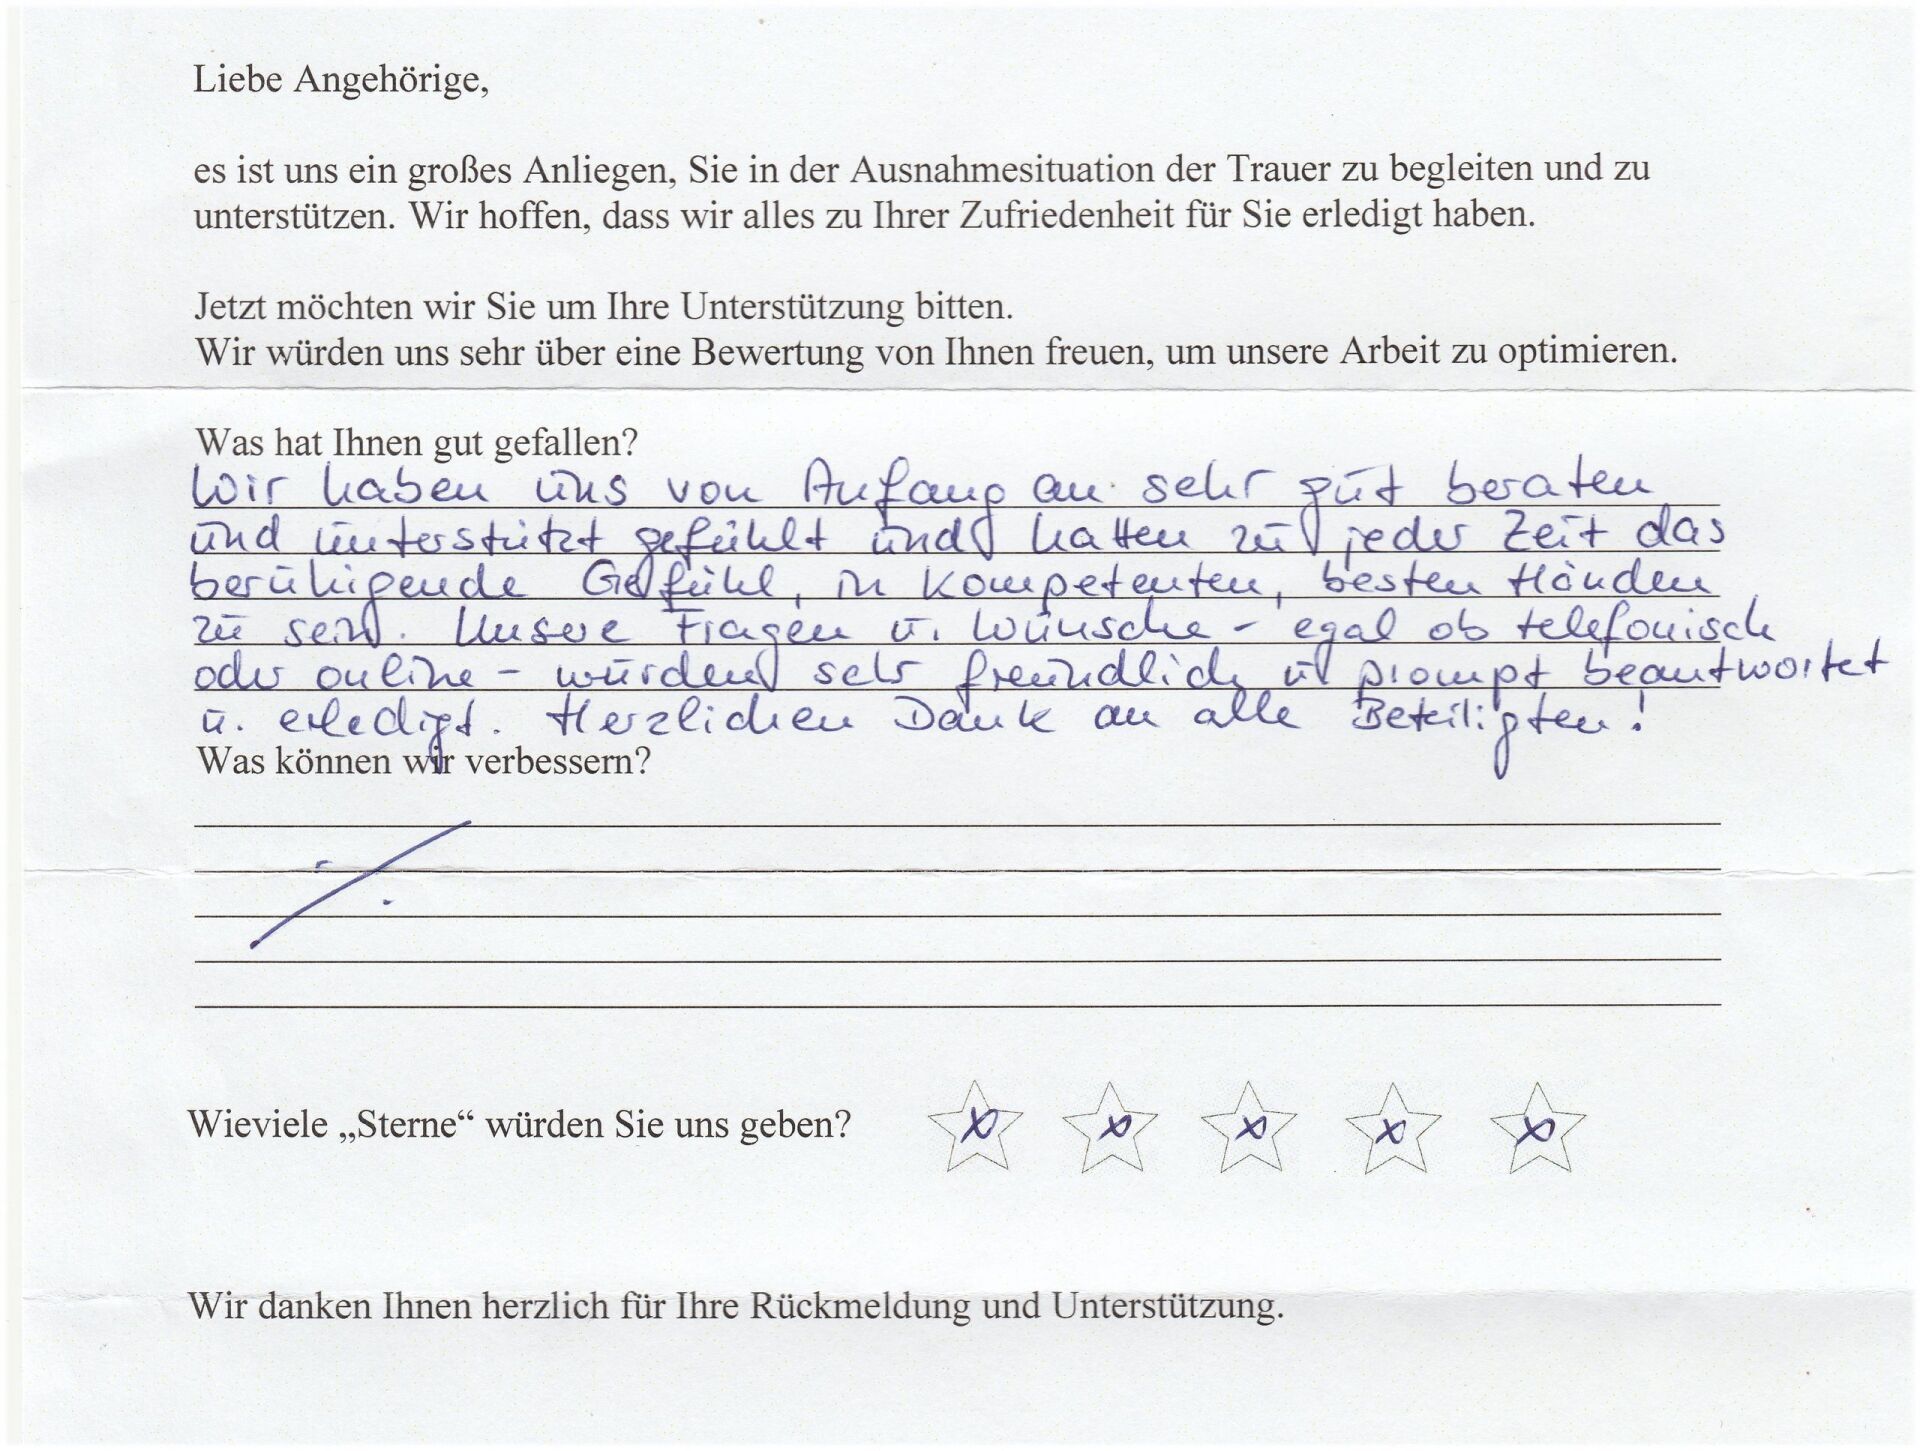 Liebe Angehörige,
es ist uns ein großes Anliegen, Sie in der Ausnahmesituation der Trauer zu begleiten und zu
unterstützen. Wir hoffen, dass wir alles zu Ihrer Zufriedenheit für Sie erledigt haben.
Jetzt möchten wir Sie um Ihre Unterstützung bitten.
Wir würden uns sehr über eine Bewertung von Ihnen freuen, um unsere Arbeit zu optimieren.
Was hat Ihnen gut gefallen?
Wir haben uns von Anfang an sehr gut beraten
und unterstützt gefühlt und hatten zu jeder Zeit das
beruhigende Gefühl, in kompetenten, besten Händen
zu sein. Unsere Fragen u. Wünsche - egal ob telefonisch
oder online - wurden sehr freundlich u prompt beantwortet
u. erledigt. Herzlichen Dank an alle Beteiligten!
Was können wir verbessern?
./.
Wieviele „Sterne“ würden Sie uns geben? x x x x x
Wir danken Ihnen herzlich für Ihre Rückmeldung und Unterstützung.